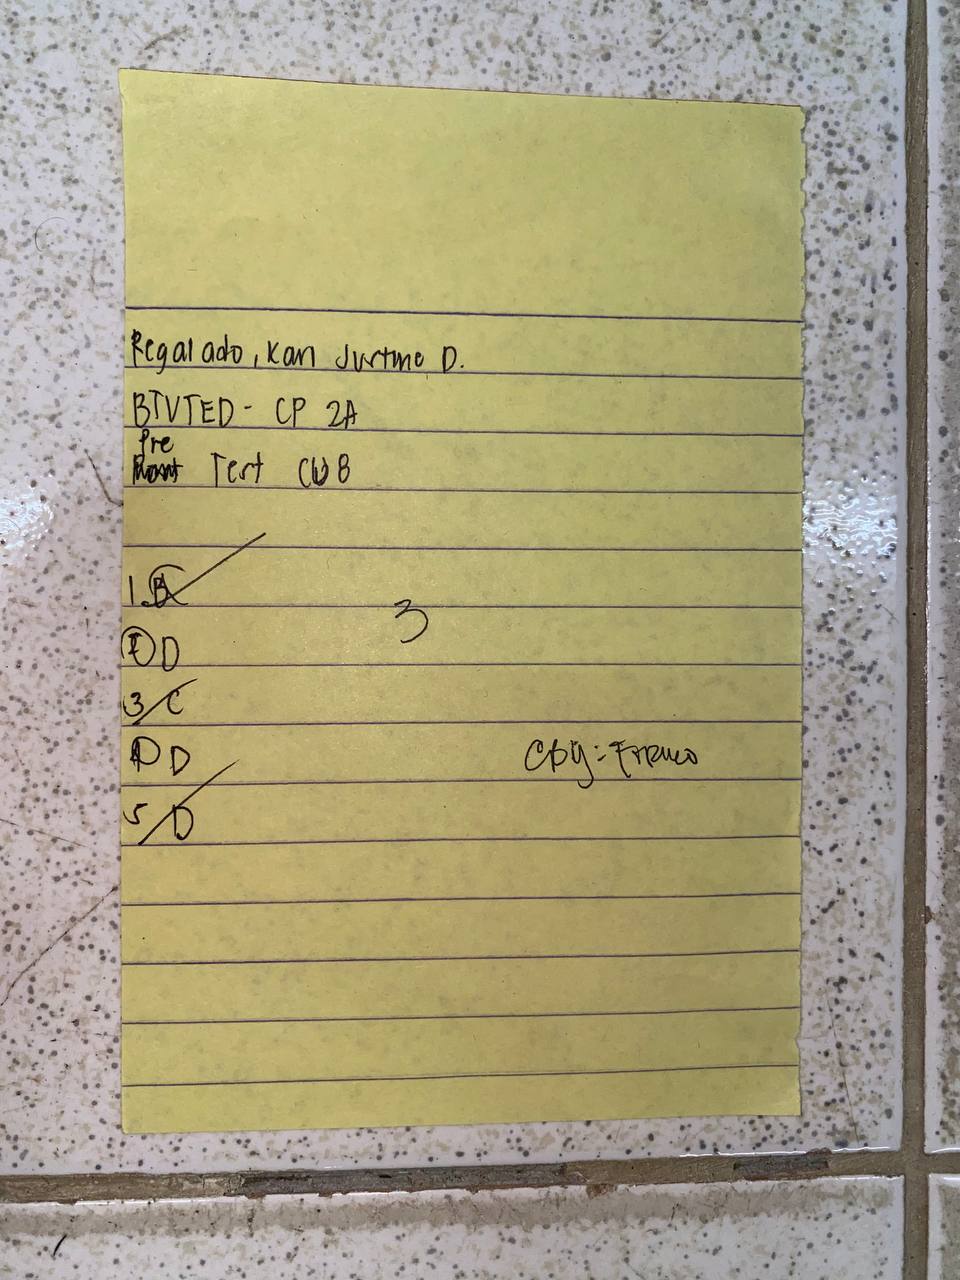 Regalado, Kan Justine D.
BTVTED - CP 2A
Pre
Test CW8
1.
D
3 C
D
5 D
3
Cby: Franco